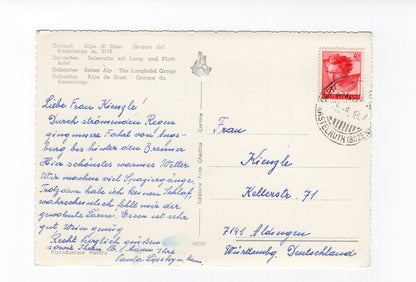 Dolomiti Alpe di Siusi Gruppo del
Sassolungo m. 3178
Dolomiten Seiseralm mit Lang- und Platt-
kofel
Dolomites Seiser Alp The Langkofel Group
Dolomites Alpe de Siusi Groupe du
Sassolungo
Liebe Frau Kienzle!
Durch strömenden Regen
ging unsere Fahrt von Augs-
burg bis hinter den Brenner
Hier schönstes warmes Wetter
Wir machen viel Spaziergänge.
Trotzdem habe ich keinen Schlaf,
wahrscheinlich fehlt mir der
gewohnte Lärm. Essen seht sehr
gut Wein
Recht herzlich grüßen
sowie Ihren lb. Mann Ihre
Riproduzione Vietata
Edizione Foto Ghedina Cortina
Frau
Kienzle
Kelterstr. 71
7141 Aldingen
Württembg. Deutschland
CASTELRUTH (BOZEN)